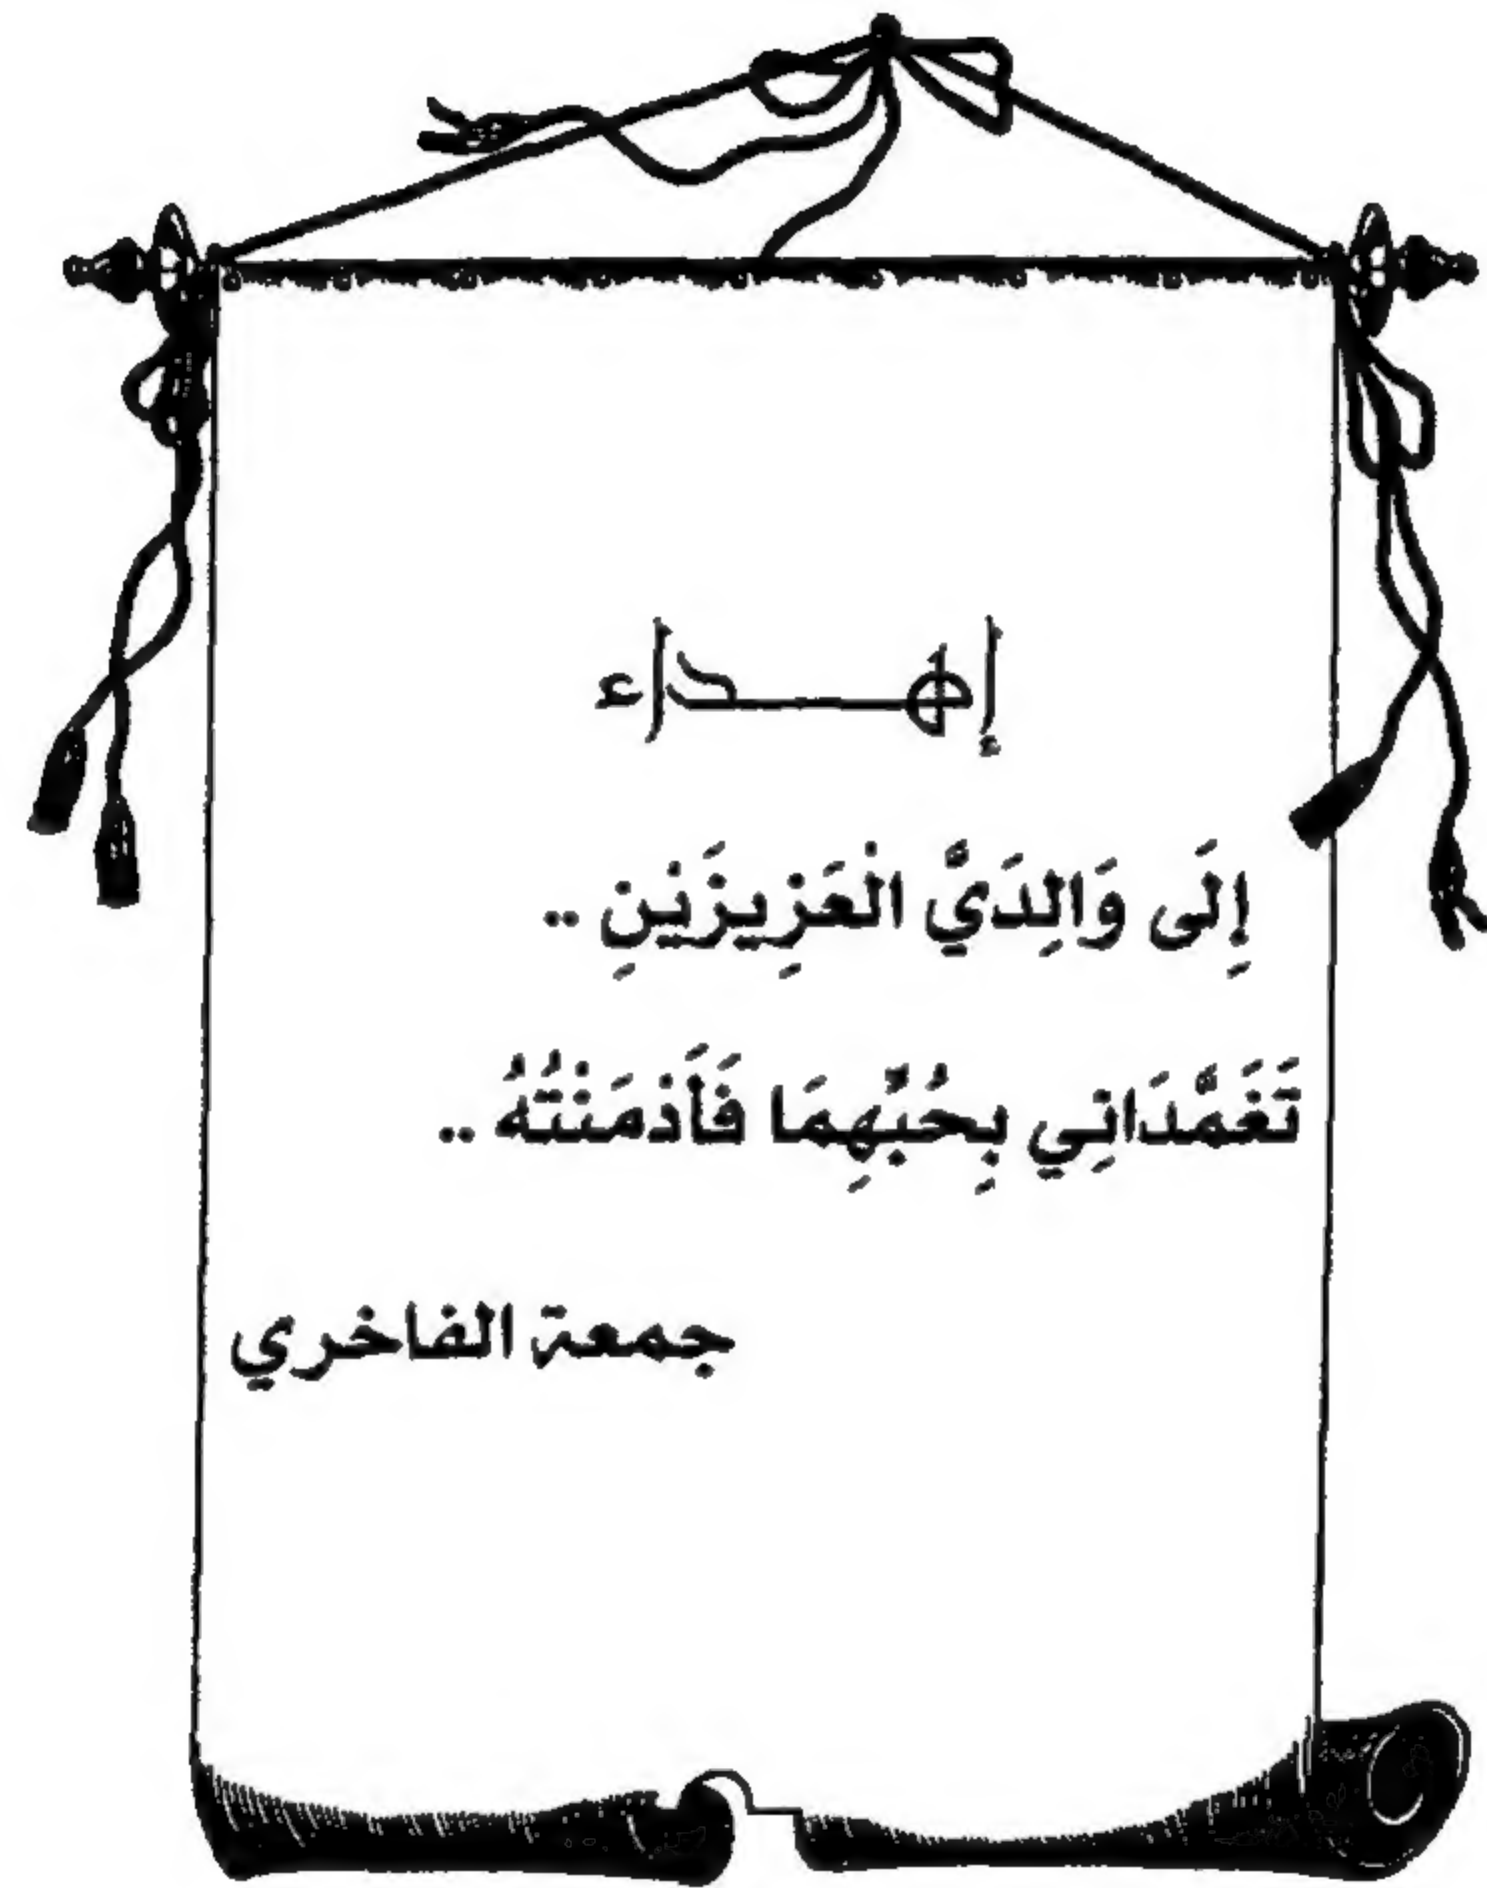 إهـــداء
إِلَى وَالِدَيَّ الْعَزِيزَيْنِ ..
تَغَمَّدَانِي بِحُبِّهِمَا فَأَدْمَنْتُهُ ..
جمعة الفاخري